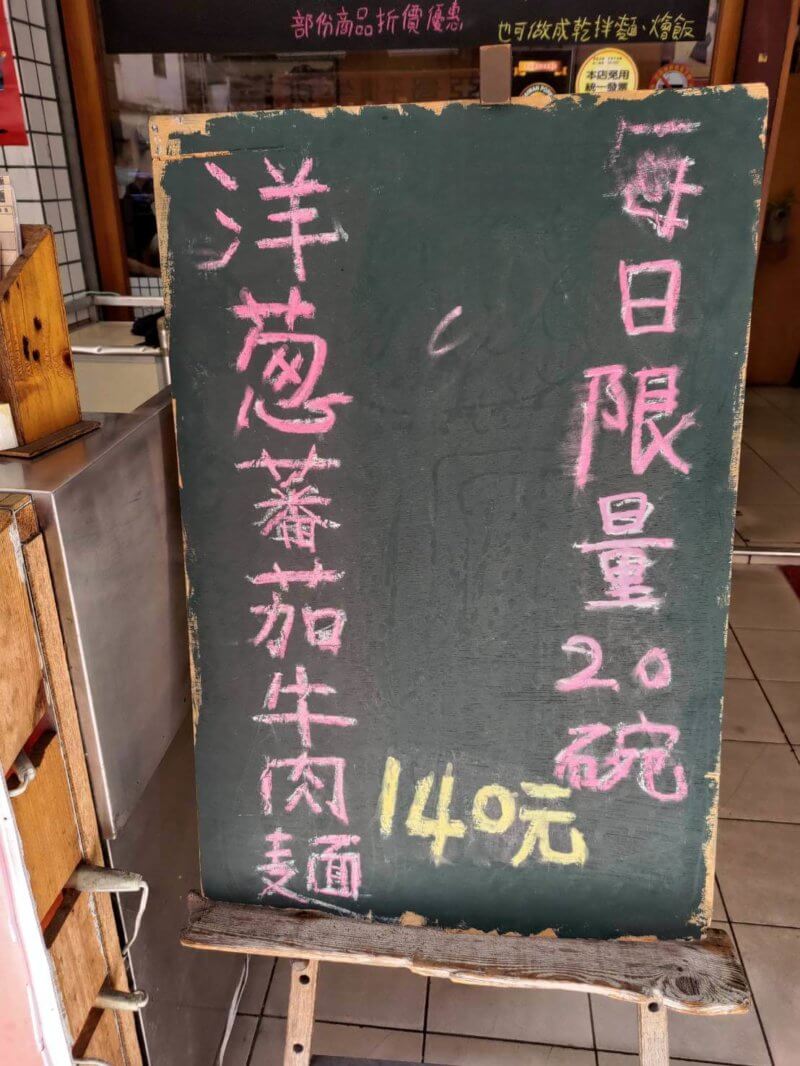 部份商品折價優惠
也可做成乾拌麵、燴飯
本店免用
統一發票
每日限量20碗
洋葱蕃茄牛肉麵
140元